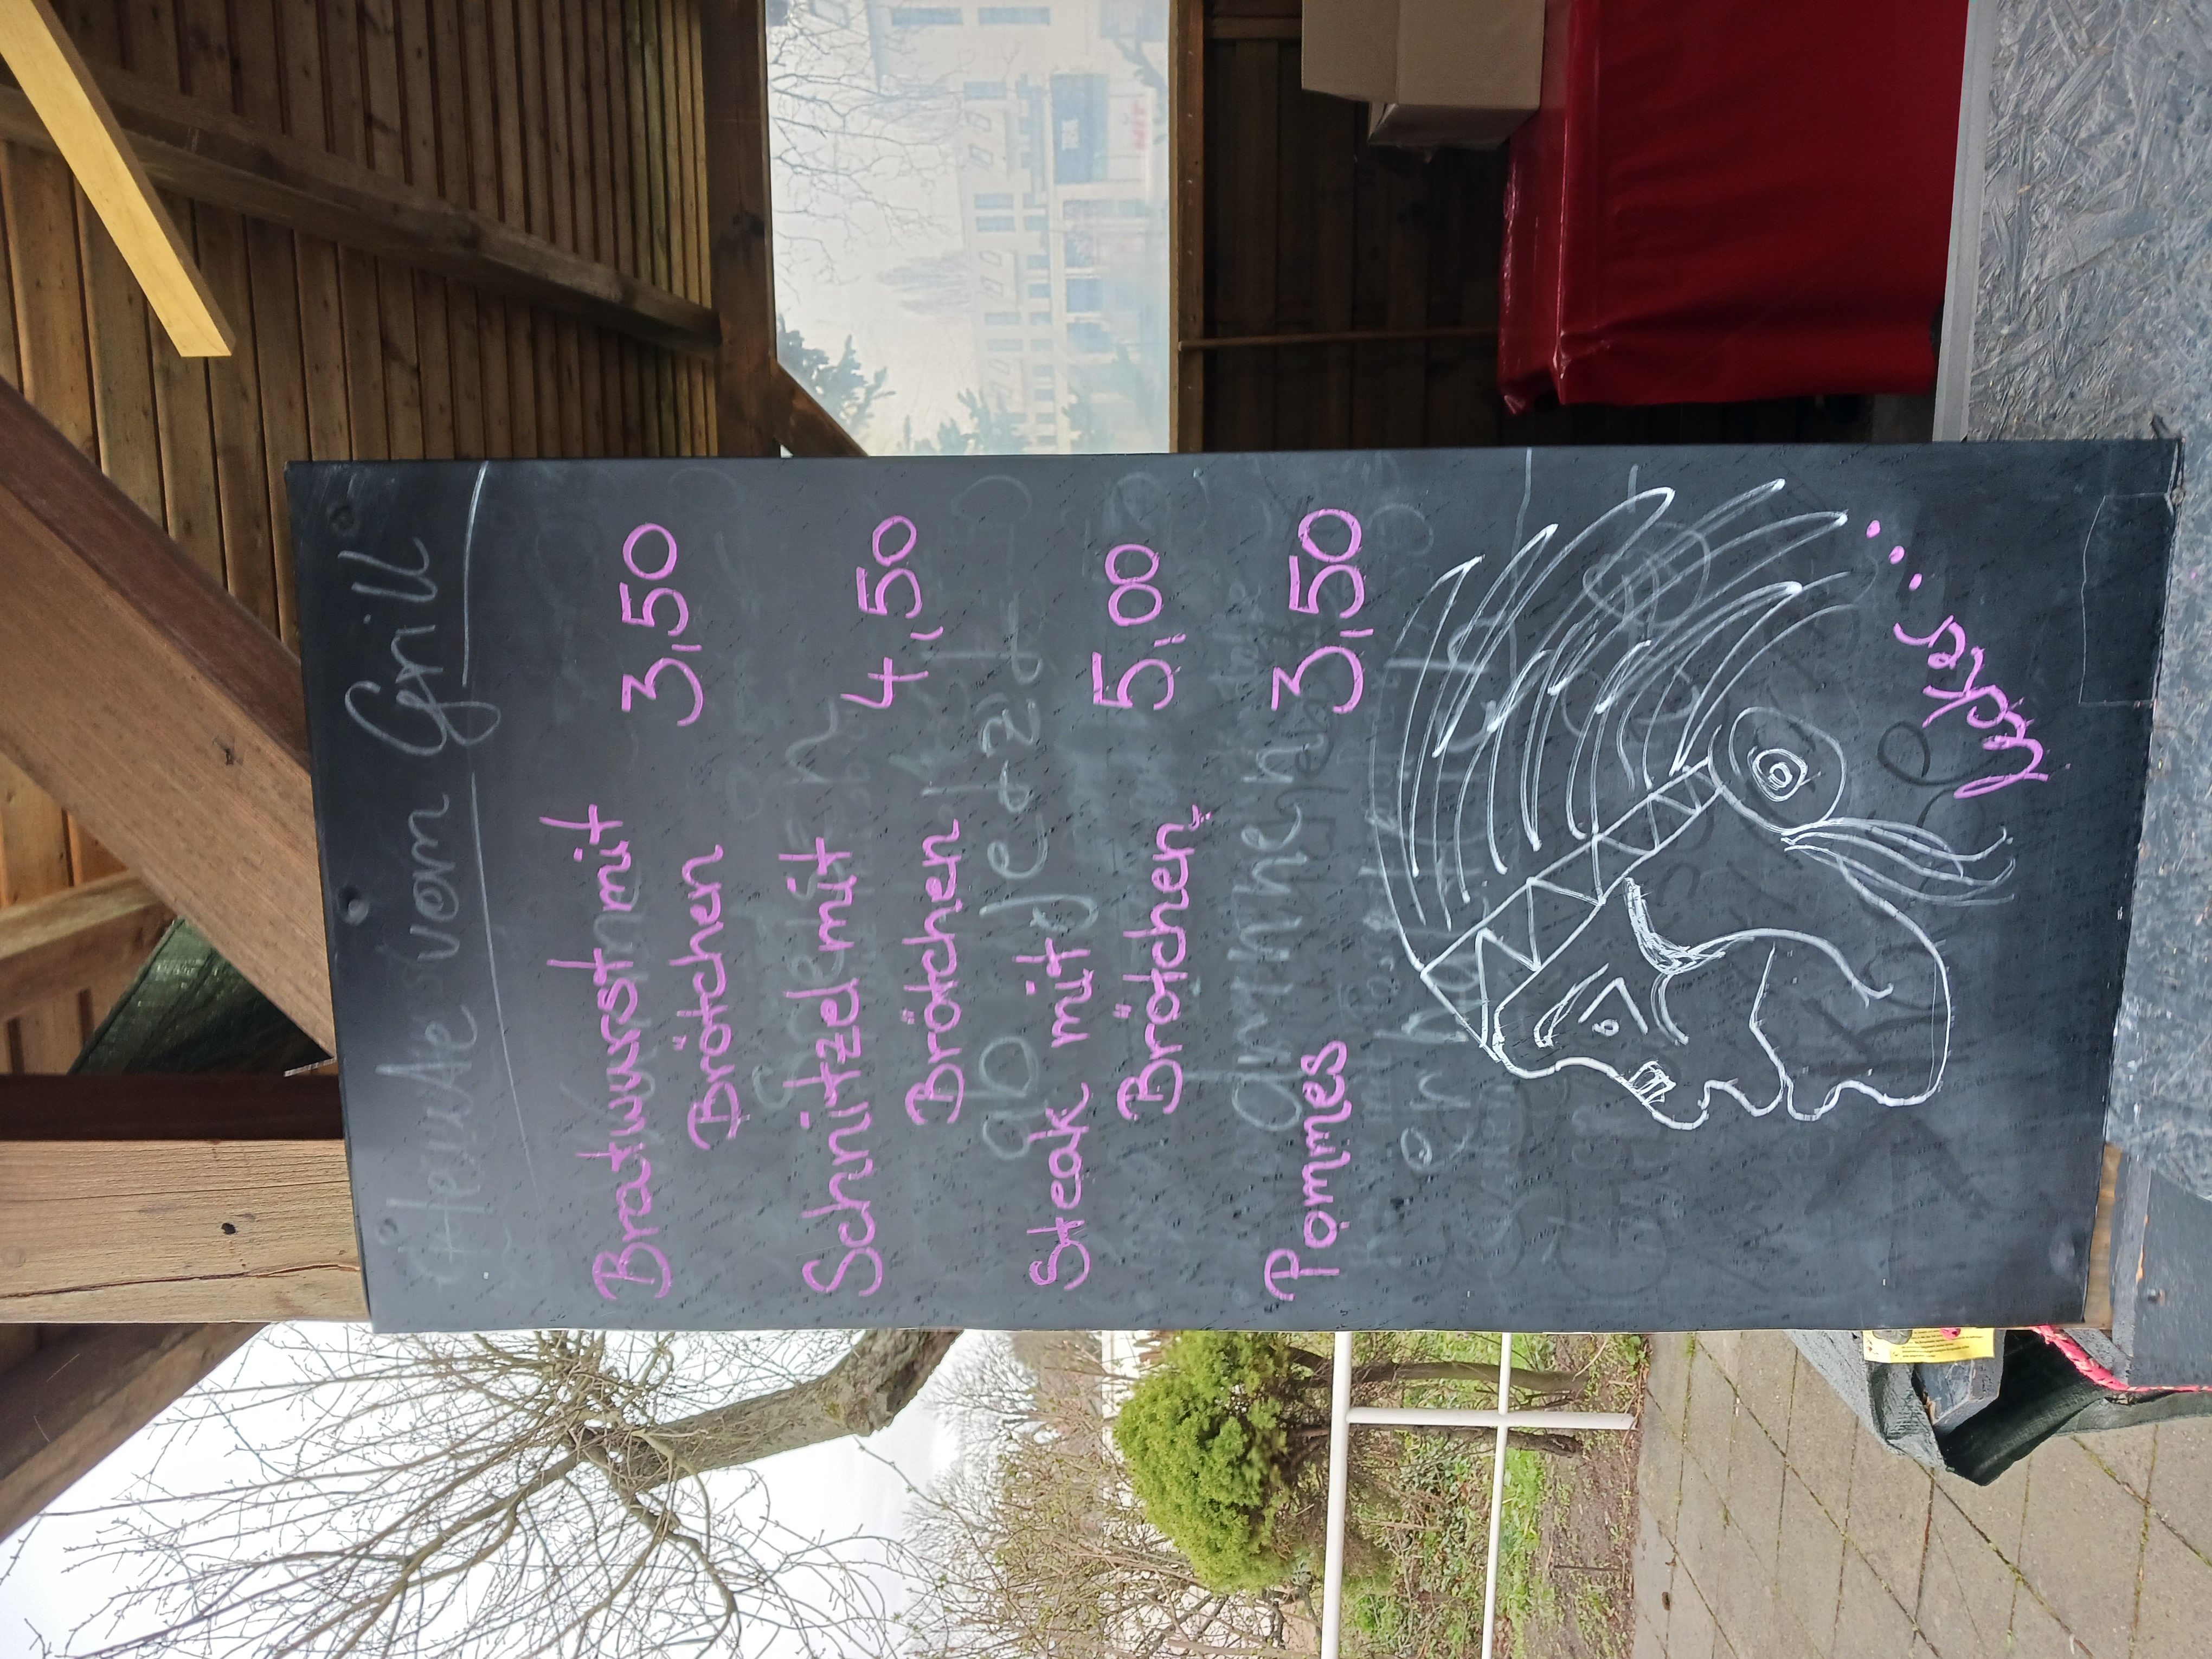 Heute vom Grill
Bratwurst mit
Brötchen 3,50
Schnitzel mit
Brötchen 4,50
Steak mit
Brötchen 5,00
Pommes 3,50
lecker...